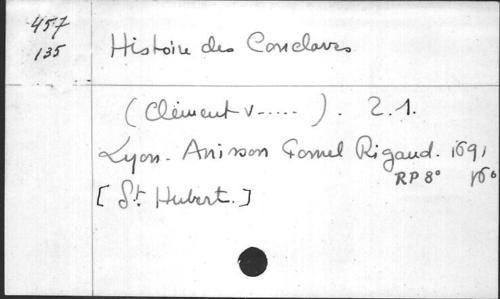 457
135
Histoire des Conclaves
(Clément V.....). 2.1.
Lyon. Anisson Posuel Rigaud. 1691
RP 8°
[St Hubert.]